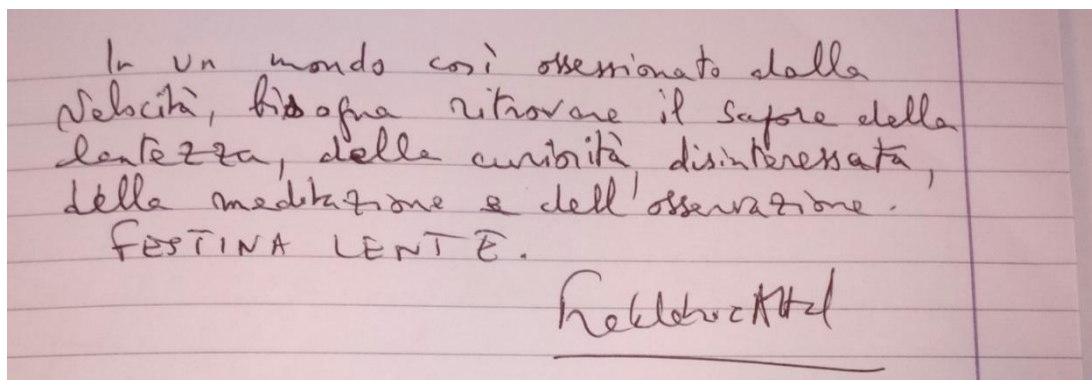 In un mondo così ossessionato dalla
velocità, bisogna ritrovare il sapore della
lentezza, della curiosità disinteressata,
della meditazione e dell'osservazione.
FESTINA LENTE.